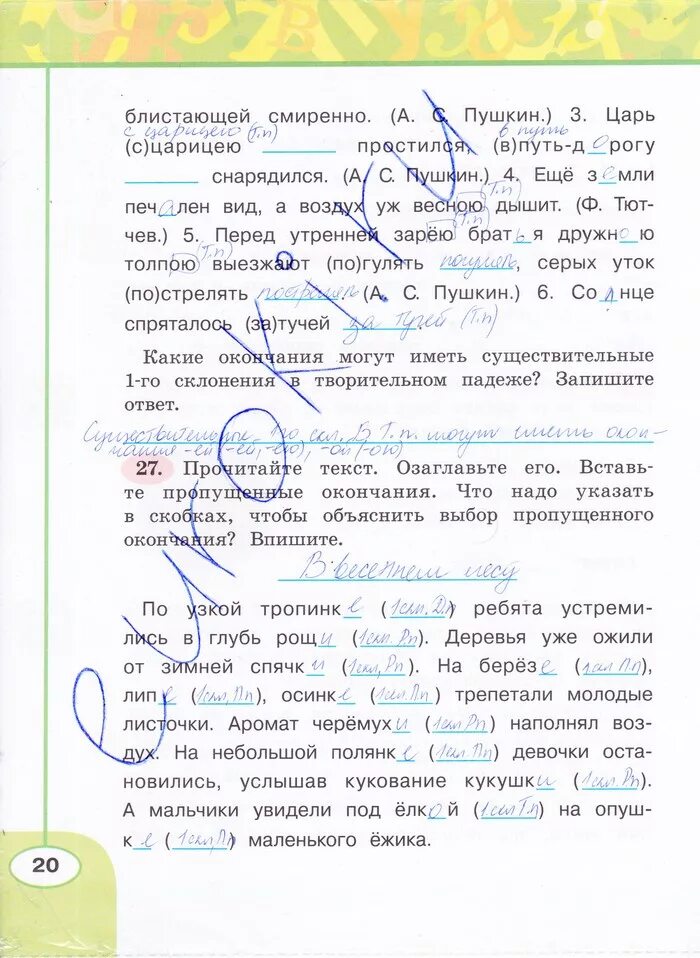 блистающей смиренно. (А. С. Пушкин.) 3. Царь
с царицею (Т.п) в путь
(с)царицею простился, (в)путь-д о рогу
снарядился. (А. С. Пушкин.) 4. Ещё з е мли
печ а лен вид, а воздух уж весною (Т.п) дышит. (Ф. Тют-
чев.) 5. Перед утренней зарёю (Т.п) брат ь я дружн о ю
толпою (Т.п) выезжают (по)гулять погулять, серых уток
(по)стрелять пострелять. (А. С. Пушкин.) 6. Со л нце
спряталось (за)тучей за тучей (Т.п)
Какие окончания могут иметь существительные
1-го склонения в творительном падеже? Запишите
ответ.
Существительные 1го скл. В Т.п. могут иметь окон-
чания -ей (-ёй, -ею), -ой (-ою)
27. Прочитайте текст. Озаглавьте его. Вставь-
те пропущенные окончания. Что надо указать
в скобках, чтобы объяснить выбор пропущенного
окончания? Впишите.
В весеннем лесу
По узкой тропинк е (1скл, Дп) ребята устреми-
лись в глубь рощ и (1скл. Рп). Деревья уже ожили
от зимней спячк и (1скл, Рп). На берёз е (1скл Пп),
лип е (1скл, Пп), осинк е (1скл Пп) трепетали молодые
листочки. Аромат черёмух и (1скл Рп) наполнял воз-
дух. На небольшой полянк е (1скл. Пп) девочки оста-
новились, услышав кукование кукушк и (1скл. Рп).
А мальчики увидели под ёлк о й (1скл Т.п) на опуш-
к е (1скл, Пп) маленького ёжика.
20
euroki.ru